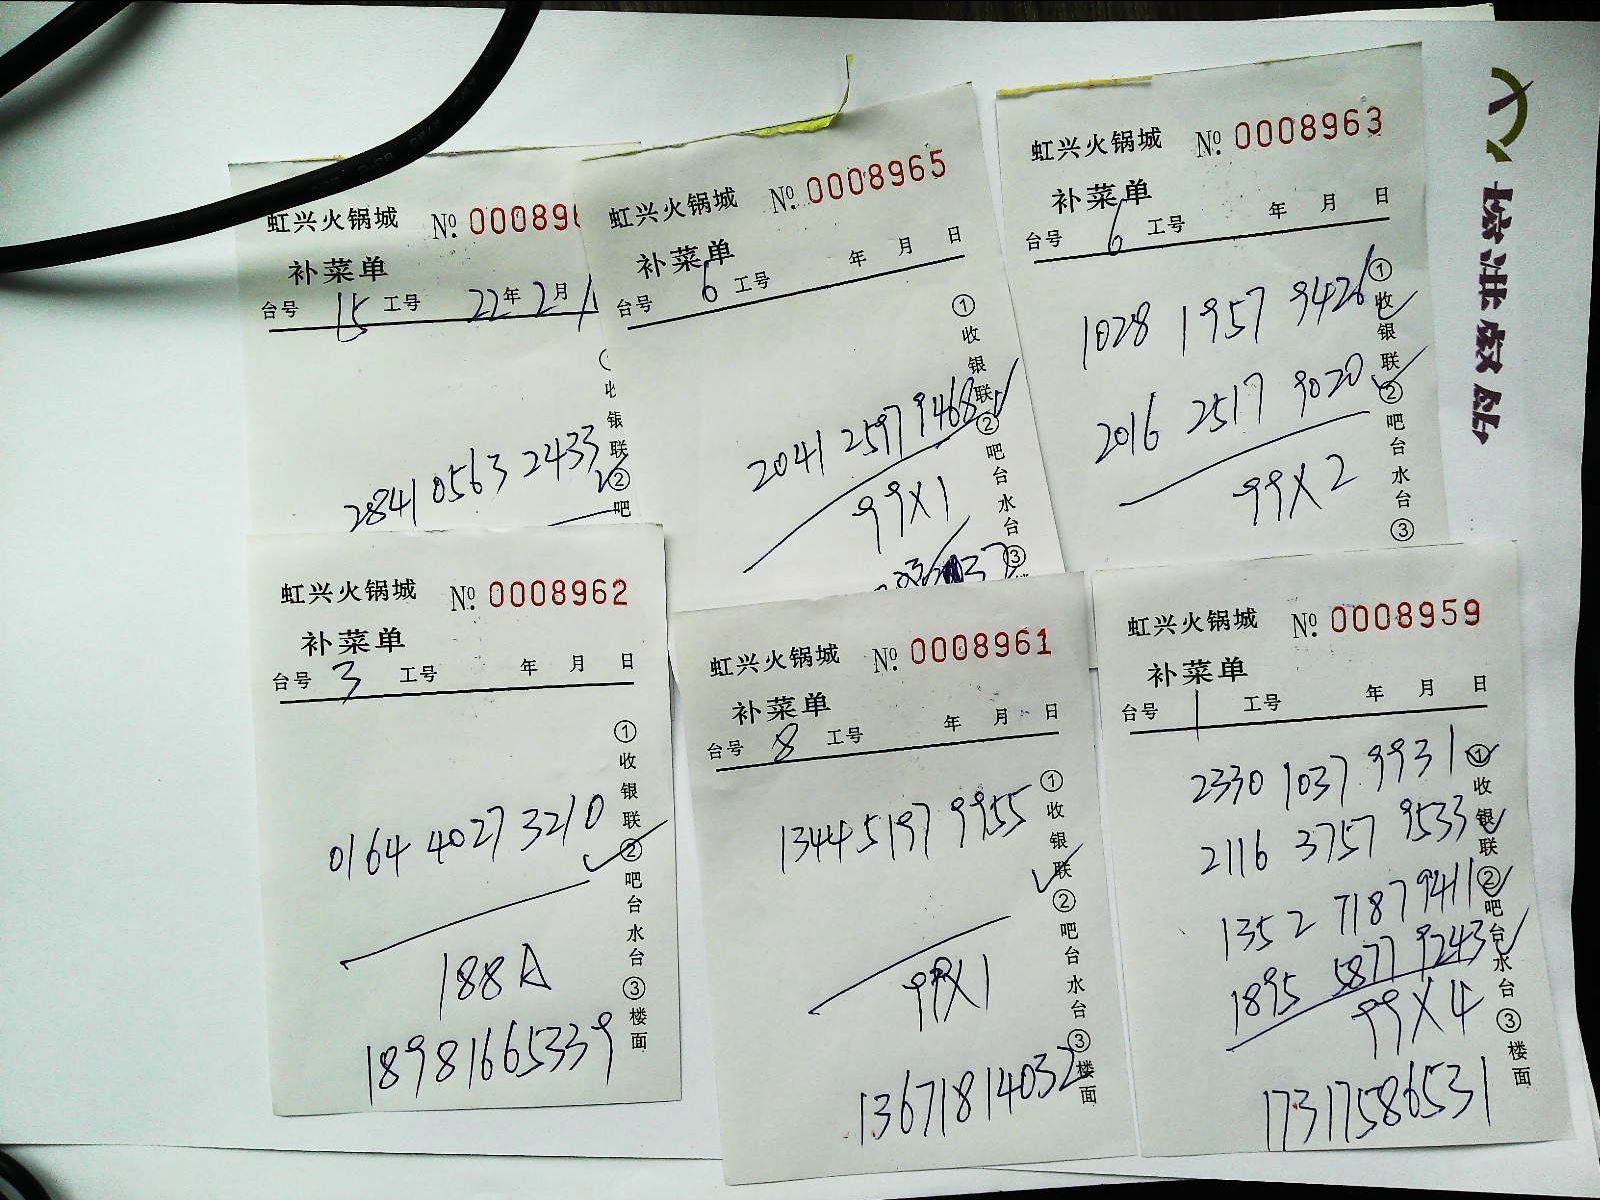 虹兴火锅城 No. 000896
补菜单
台号 15 工号 22年 2月 1
收
银
联
②
吧
2841 0563 2433
虹兴火锅城 No. 0008965
补菜单
台号 6 工号 年 月 日
①收银联②吧台水台③
2041 2597 9468
99X1
虹兴火锅城 No. 0008963
补菜单
台号 6 工号 年 月 日
①收银联②吧台水台③
1028 1957 9426
2016 2517 9020
99X2
虹兴火锅城 No. 0008962
补菜单
台号 3 工号 年 月 日
①收银联②吧台水台③楼面
0164 4027 3210
188A
18981665339
虹兴火锅城 No. 0008961
补菜单
台号 8 工号 年 月 日
①收银联②吧台水台③楼面
1344 5197 9955
99X1
13671814032
虹兴火锅城 No. 0008959
补菜单
台号 1 工号 年 月 日
①收银联②吧台水台③楼面
2330 1037 9931
2116 3757 9533
1352 7187 9411
1895 5877 9243
99X4
17317586531